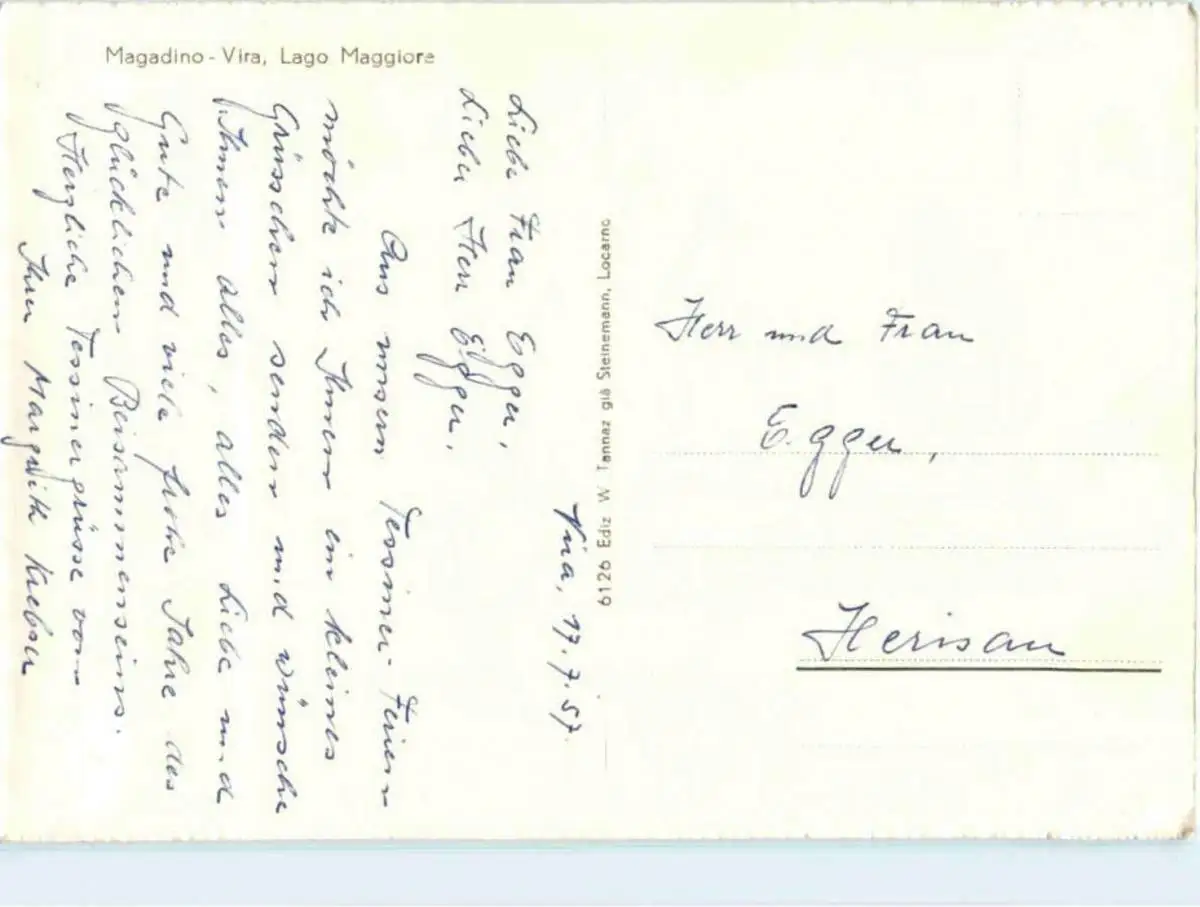 Magadino - Vira, Lago Maggiore
Vira, 17.7.57.
Liebe Frau Egger,
Lieber Herr Egger,
Aus unsern Tessiner-Ferien
möchte ich Ihnen ein kleines
Grüsschen senden und wünsche
Ihnen alles, alles Liebe und
Gute und viele frohe Jahre des
glücklichen Beisammenseins.
Herzliche Tessinergrüsse von
Ihrer Margrith
6126 Ediz W. Tannaz già Steinemann, Locarno
Herr und Frau
Egger,
Herisau